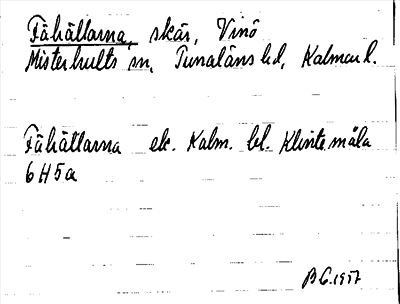 Fåhällarna, skär, Vinö
Misterhults sn, Tunaläns hd, Kalmar l.
Fåhällarna ek. Kalm. bl. Klintemåla
6H5a
B.G. 1957